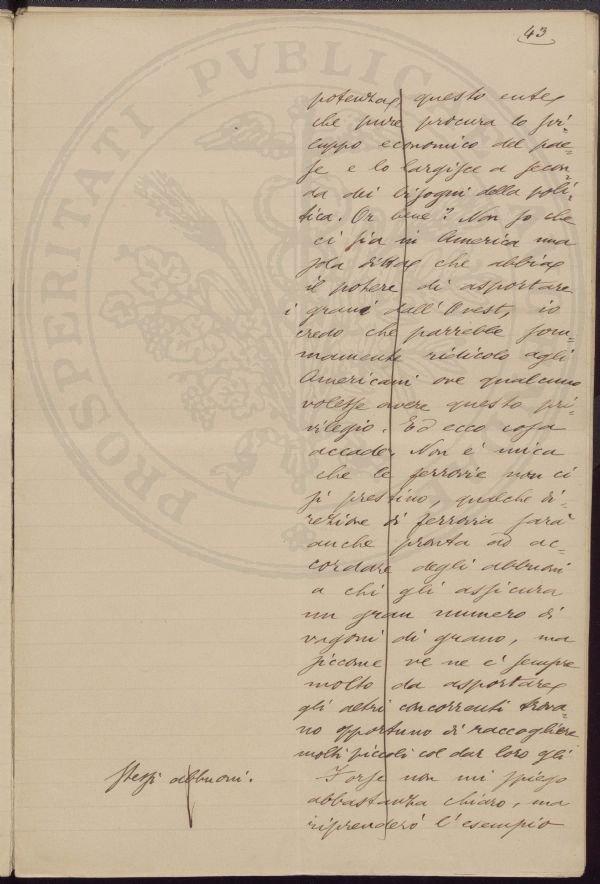 43
potenza, questo ente,
che pure procura lo svi=
luppo economico del pae=
se e lo largisce a secon=
da dei bisogni della poli=
tica. Or bene? Non so che
ci sia in America una
sola ditta che abbia
il potere di asportare
i grani dall'Ovest, io
credo che parrebbe som=
mamente ridicolo agli
Americani ove qualcuno
volesse avere questo pri=
vilegio. Ed ecco cosa
accade. Non è mica
che le ferrovie non ci
si prestino, qualche di=
rezione di ferrovia sarà
anche pronta ad ac=
cordare degli abbuoni
a chi gli assicura
un gran numero di
vagoni di grano, ma
siccome ve ne è sempre
molto da asportare
gli altri concorrenti trova=
no opportuno di raccogliere
molti piccoli col dar loro gli
stessi abbuoni.
Forse non mi spiego
abbastanza chiaro, ma
riprenderò l'esempio
PROSPERITATI PVBLIC